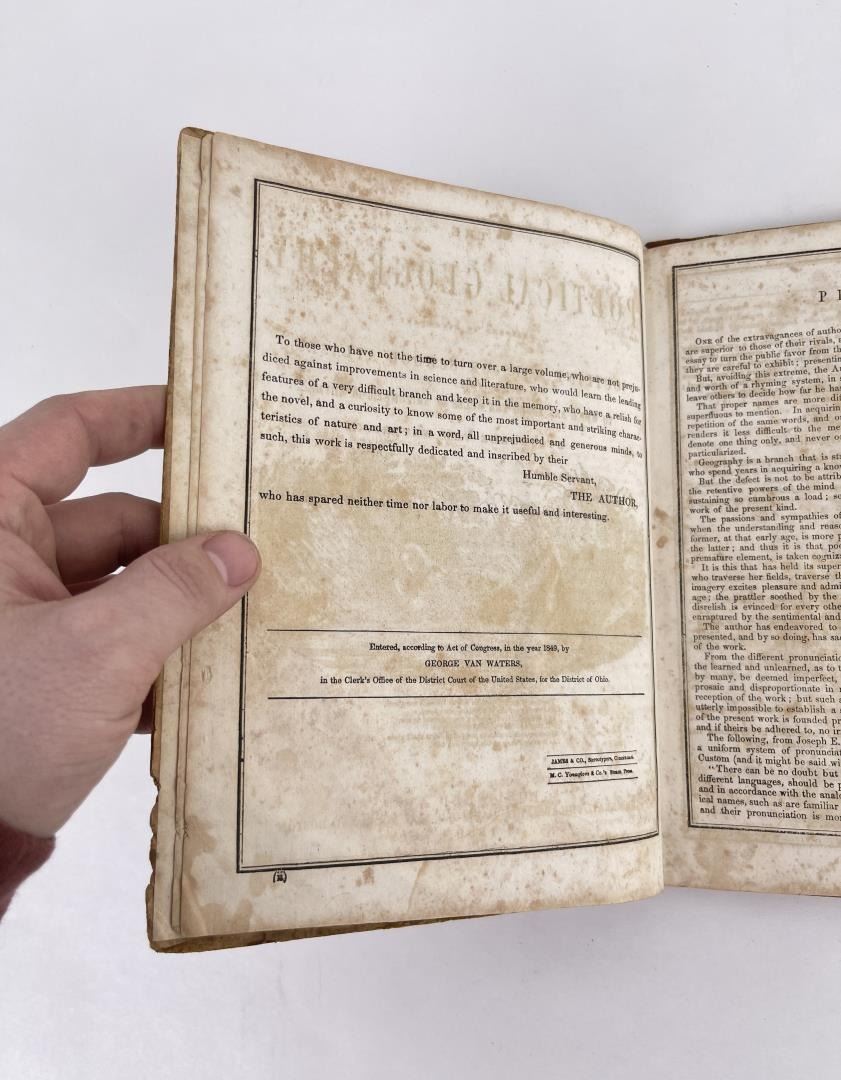 To those who have not the time to turn over a large volume, who are not preju-
diced against improvements in science and literature, who would learn the leading
features of a very difficult branch and keep it in the memory, who have a relish for
the novel, and a curiosity to know some of the most important and striking charac-
teristics of nature and art; in a word, all unprejudiced and generous minds, to
such, this work is respectfully dedicated and inscribed by their
Humble Servant,
THE AUTHOR,
who has spared neither time nor labor to make it useful and interesting.
Entered, according to Act of Congress, in the year 1849, by
GEORGE VAN WATERS,
in the Clerk's Office of the District Court of the United States, for the District of Ohio.
JAMES & CO., Stereotypers, Cincinnati.
M. C. Younglove & Co.'s Steam Press.
(ii)
P
ONE of the extravagances of autho
are superior to those of their rivals,
essay to turn the public favor from th
they are careful to exhibit; presenti
But, avoiding this extreme, the Au
and worth of a rhyming system, in
leave others to decide how far he ha
That proper names are more dif
superfluous to mention. In acquirin
repetition of the same words, and o
renders it less difficult to the me
denote one thing only, and never o
particularized.
Geography is a branch that is st
who spend years in acquiring a kno
But the defect is not to be attrib
the retentive powers of the mind
sustaining so cumbrous a load; so
work of the present kind.
The passions and sympathies of
when the understanding and reas
former, at that early age, is more p
the latter; and thus it is that poe
premature element, is taken cogniz
It is this that has held its super
who traverse her fields, traverse th
imagery excites pleasure and admi
age; the prattler soothed by the
disrelish is evinced for every othe
enraptured by the sentimental and
The author has endeavored to
presented, and by so doing, has sa
of the work.
From the different pronunciatio
the learned and unlearned, as to t
by many, be deemed imperfect,
prosaic and disproportionate in
reception of the work; but such a
utterly impossible to establish a
of the present work is founded pr
and if theirs be adhered to, no ir
The following, from Joseph E.
a uniform system of pronunciat
Custom (and it might be said wi
"There can be no doubt but
different languages, should be p
and in accordance with the anal
ical names, such as are familiar
and their pronunciation is mor